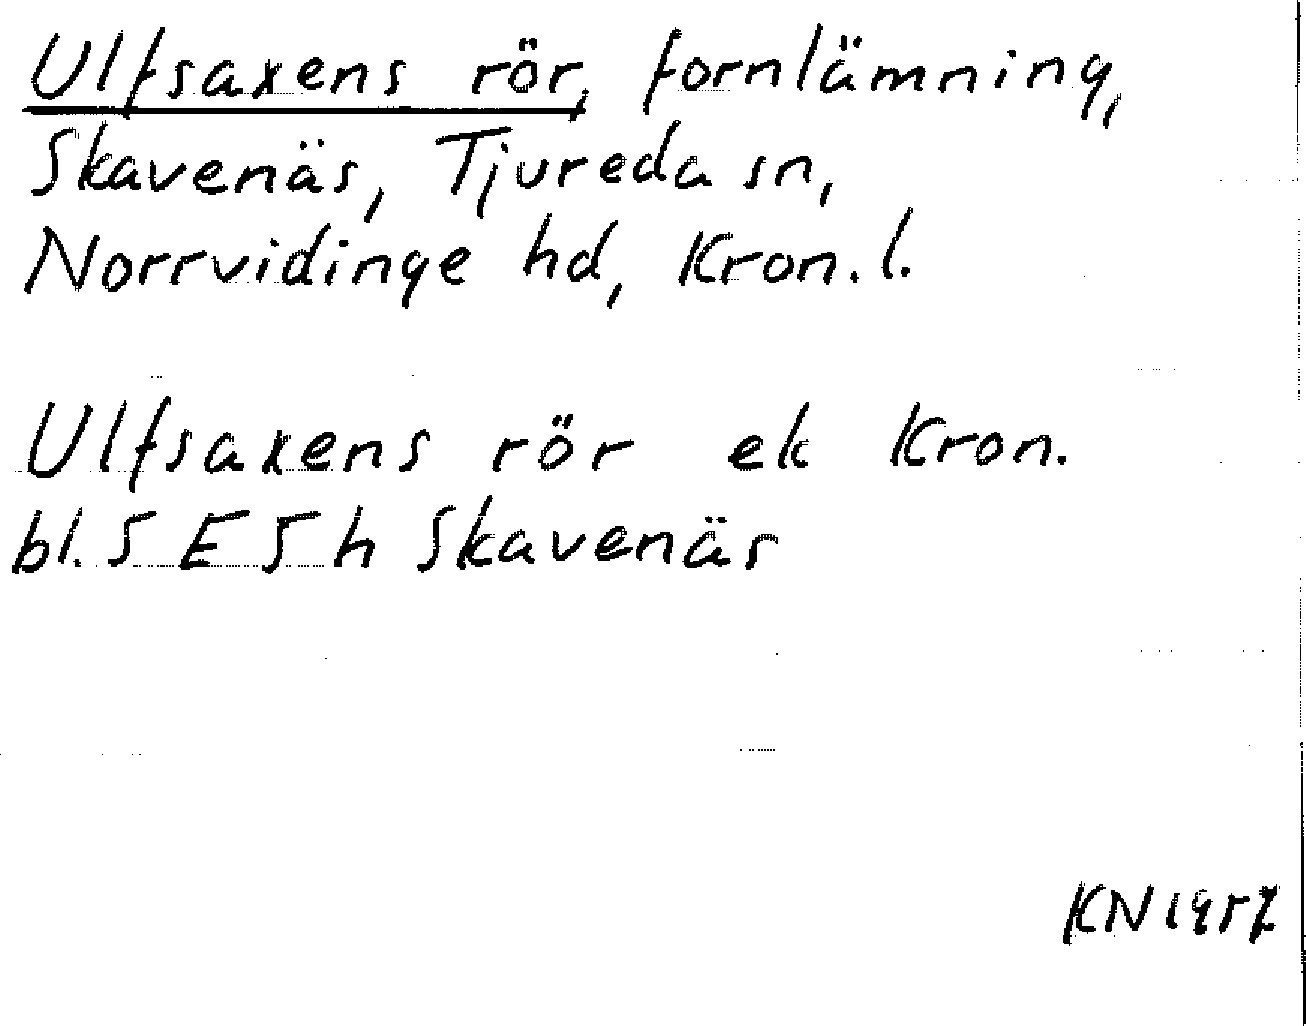 Ulfsaxens rör, fornlämning,
Skavenäs, Tjureda sn,
Norrvidinge hd, Kron. l.
Ulfsaxens rör ek Kron.
bl. 5 E 5 h Skavenäs
KN 1957